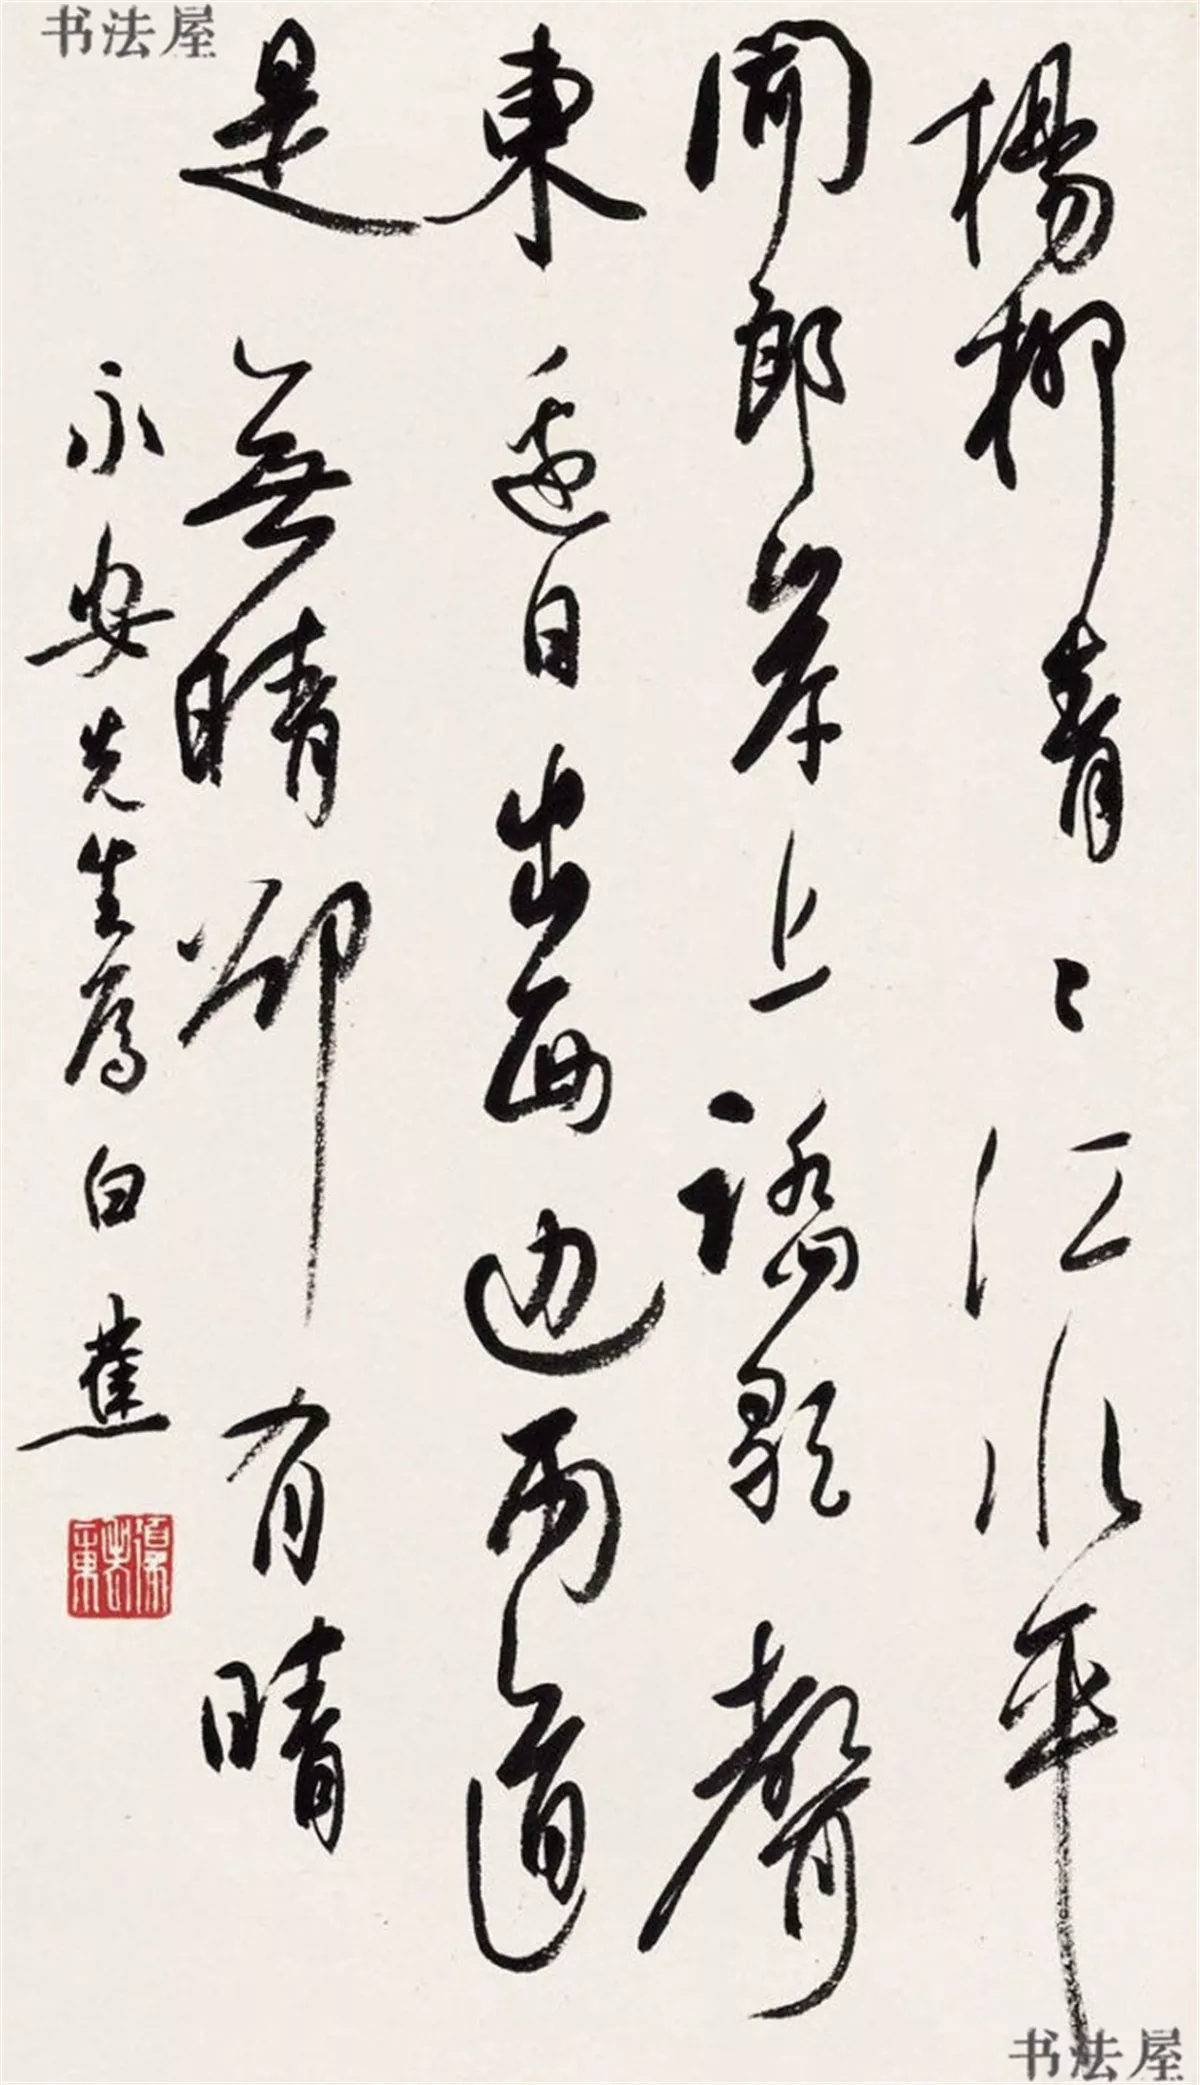 书法屋
楊柳青〻江水平
聞郎岸上踏歌聲
東邊日出西边雨道
是無晴卻有晴
永安先生属 白蕉
书法屋